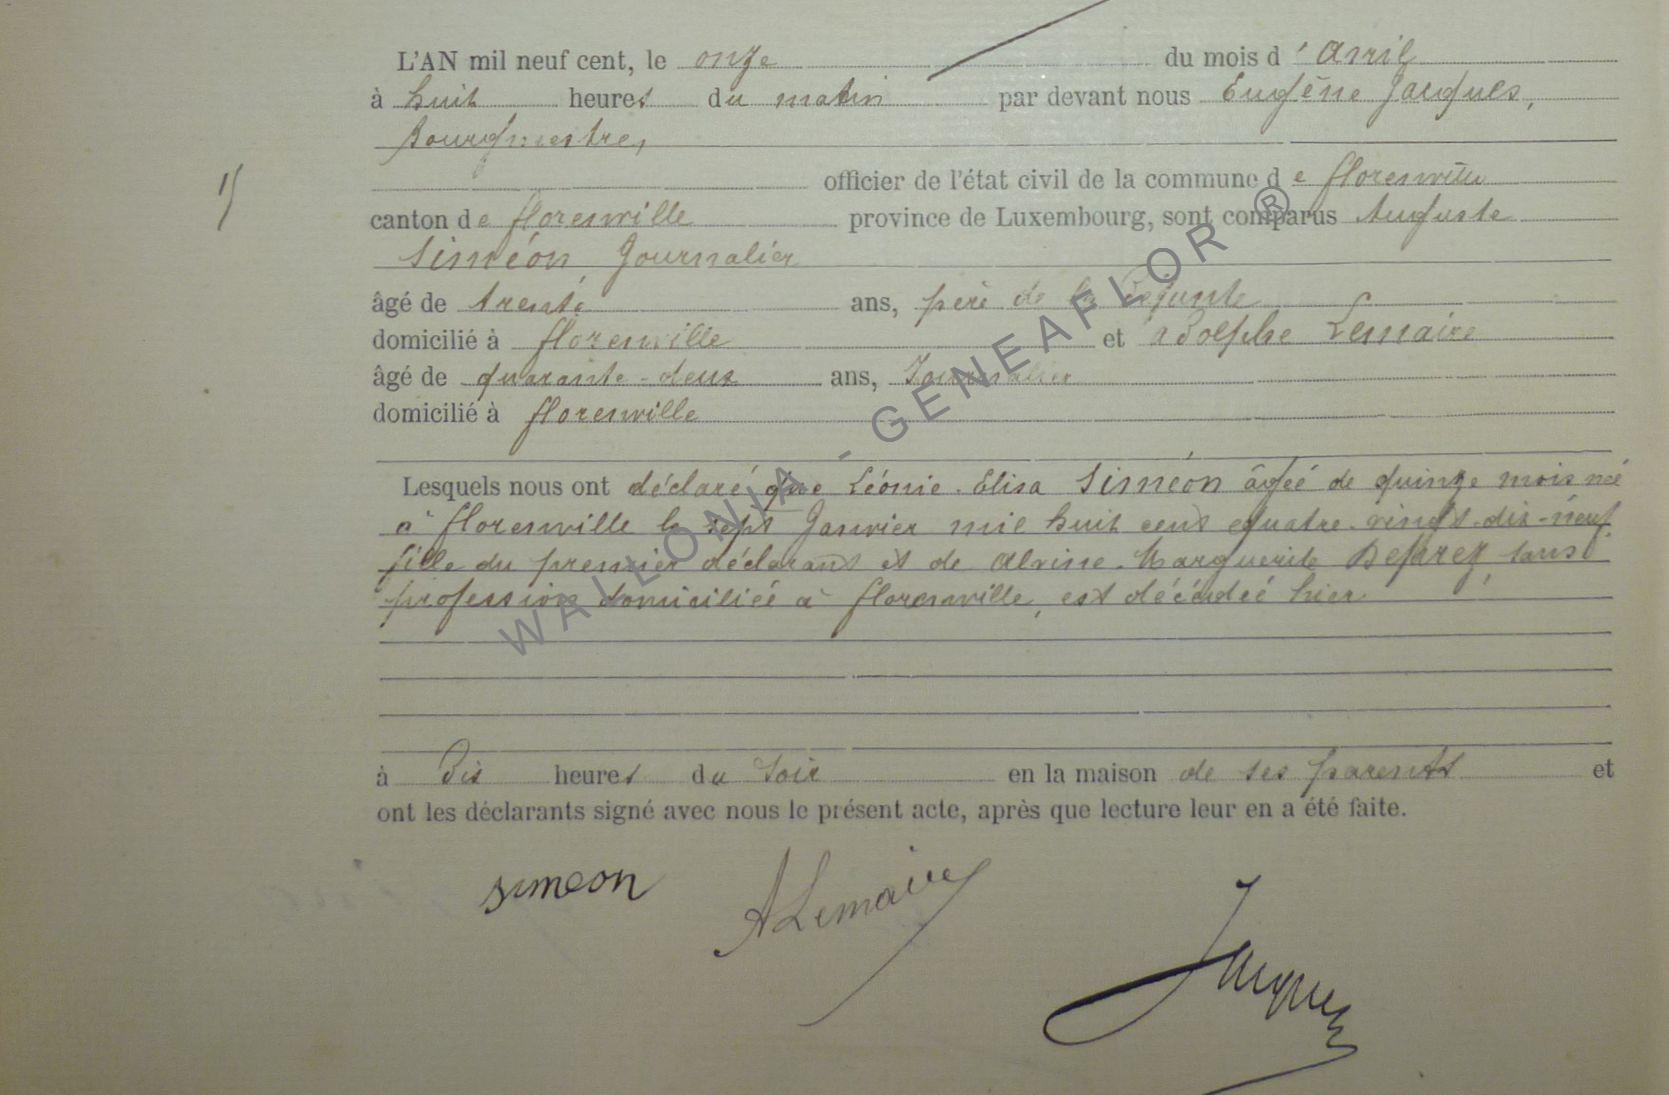 L'AN mil neuf cent, le onze du mois d'Avril
à huit heures du matin par devant nous Eugène Jacques,
Bourgmestre,
officier de l'état civil de la commune de florenville
canton de florenville province de Luxembourg, sont comparus Auguste
Siméon, Journalier
âgé de trente ans, père de la Défunte
domicilié à florenville et Adolphe Lemaire
âgé de quarante-deux ans, Journalier
domicilié à florenville
Lesquels nous ont déclaré que Léonie-Elisa Siméon âgée de quinze mois née
à florenville le sept Janvier mil huit cent quatre-vingt-dix-neuf
fille du premier déclarant et de Alvine-Marguerite Deprez, sans
profession domiciliée à florenville, est décédée hier
à Dix heures du soir en la maison de ses parents et
ont les déclarants signé avec nous le présent acte, après que lecture leur en a été faite.
simeon
ALemaire
Jacques
WALLONIA - GENEAFLOR ®